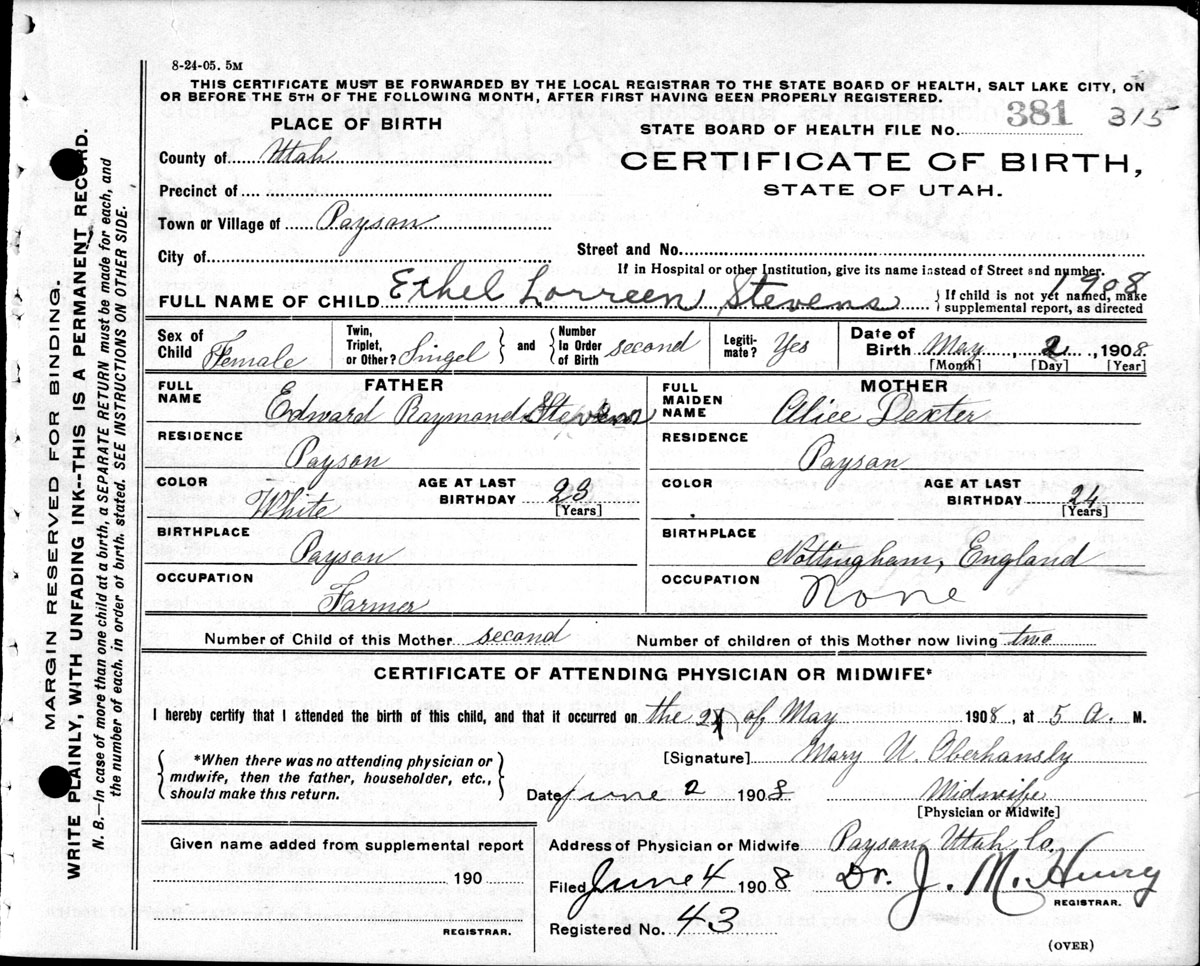 8-24-05. 5M
THIS CERTIFICATE MUST BE FORWARDED BY THE LOCAL REGISTRAR TO THE STATE BOARD OF HEALTH, SALT LAKE CITY, ON
OR BEFORE THE 5TH OF THE FOLLOWING MONTH, AFTER FIRST HAVING BEEN PROPERLY REGISTERED.
PLACE OF BIRTH
STATE BOARD OF HEALTH FILE No. 381 315
County of Utah
CERTIFICATE OF BIRTH,
STATE OF UTAH.
Precinct of
Town or Village of Payson
City of
Street and No.
If in Hospital or other Institution, give its name instead of Street and number.
1908
FULL NAME OF CHILD Ethel Lorreen Stevens { If child is not yet named, make
supplemental report, as directed
Sex of Child Female
Twin, Triplet, or Other? Singel } and { Number In Order of Birth second
Legiti-mate? Yes
Date of Birth May, 2, 1908
[Month] [Day] [Year]
FATHER
FULL NAME Edward Raymond Stevens
MOTHER
FULL MAIDEN NAME Alice Dexter
RESIDENCE Payson
RESIDENCE Payson
COLOR White
AGE AT LAST BIRTHDAY 23
[Years]
COLOR
AGE AT LAST BIRTHDAY 24
[Years]
BIRTHPLACE Payson
BIRTHPLACE Nottingham, England
OCCUPATION Farmer
OCCUPATION None
Number of Child of this Mother second Number of children of this Mother now living two
CERTIFICATE OF ATTENDING PHYSICIAN OR MIDWIFE*
I hereby certify that I attended the birth of this child, and that it occurred on the 2 of May 1908, at 5 A. M.
*When there was no attending physician or
midwife, then the father, householder, etc.,
should make this return.
[Signature] Mary U. Oberhansly
Date June 2 1908 Midwife
[Physician or Midwife]
Given name added from supplemental report
190
REGISTRAR.
Address of Physician or Midwife Payson Utah Co.
Filed June 4 1908 Dr. J. M. Henry
REGISTRAR.
Registered No. 43
(OVER)
MARGIN RESERVED FOR BINDING.
WRITE PLAINLY, WITH UNFADING INK--THIS IS A PERMANENT RECORD.
N. B.—In case of more than one child at a birth, a SEPARATE RETURN must be made for each, and
the number of each, in order of birth, stated. SEE INSTRUCTIONS ON OTHER SIDE.